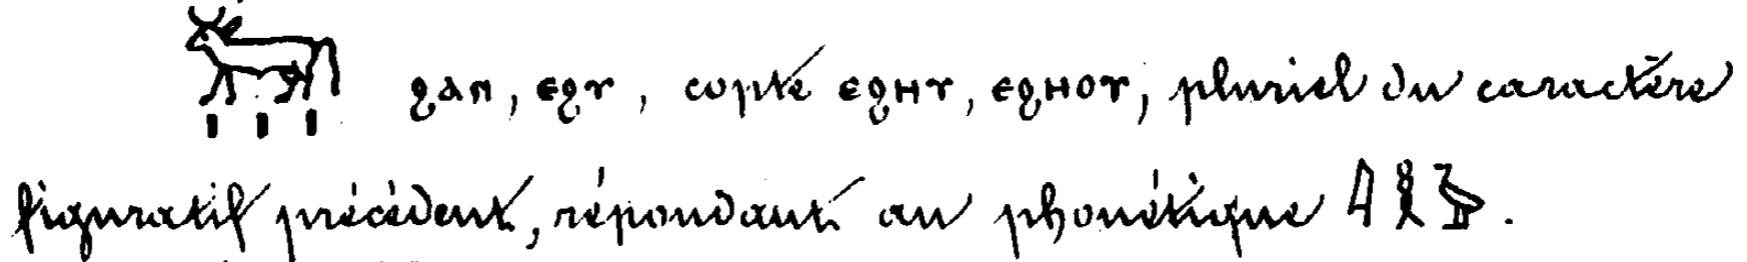 𓃒𓏥 ϩⲁⲛ, ⲉϩⲩ, copte ⲉϩⲏⲩ, ⲉϩⲏⲟⲩ, pluriel du caractère
figuratif précédent, répondant au phonétique 𓇋𓎛𓅱.